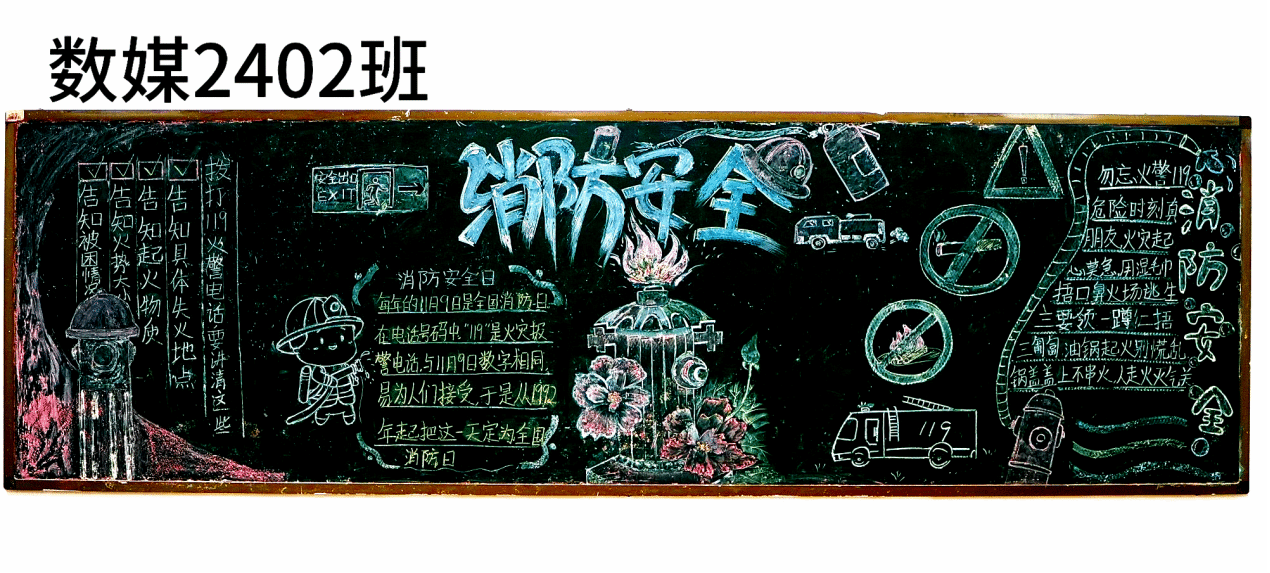 数媒2402班
消防安全
拨打119火警电话要讲清这些
告知具体失火地点
告知起火物质
告知火势大
告知被困情况
安全出口
EXIT
消防安全日
每年的11月9日是全国消防日
在电话号码中,"119"是火灾报
警电话,与11月9日数字相同,
易为人们接受,于是从1992
年起,把这一天定为全国
消防日
119
勿忘火警119
危险时刻真
朋友,火灾起
心莫急,用湿毛巾
捂口鼻火场逃生
三要领一蹲仁捂
三匍匐,油锅起火别慌乱,
锅盖盖上不串火,人走火灭气关
消防安全